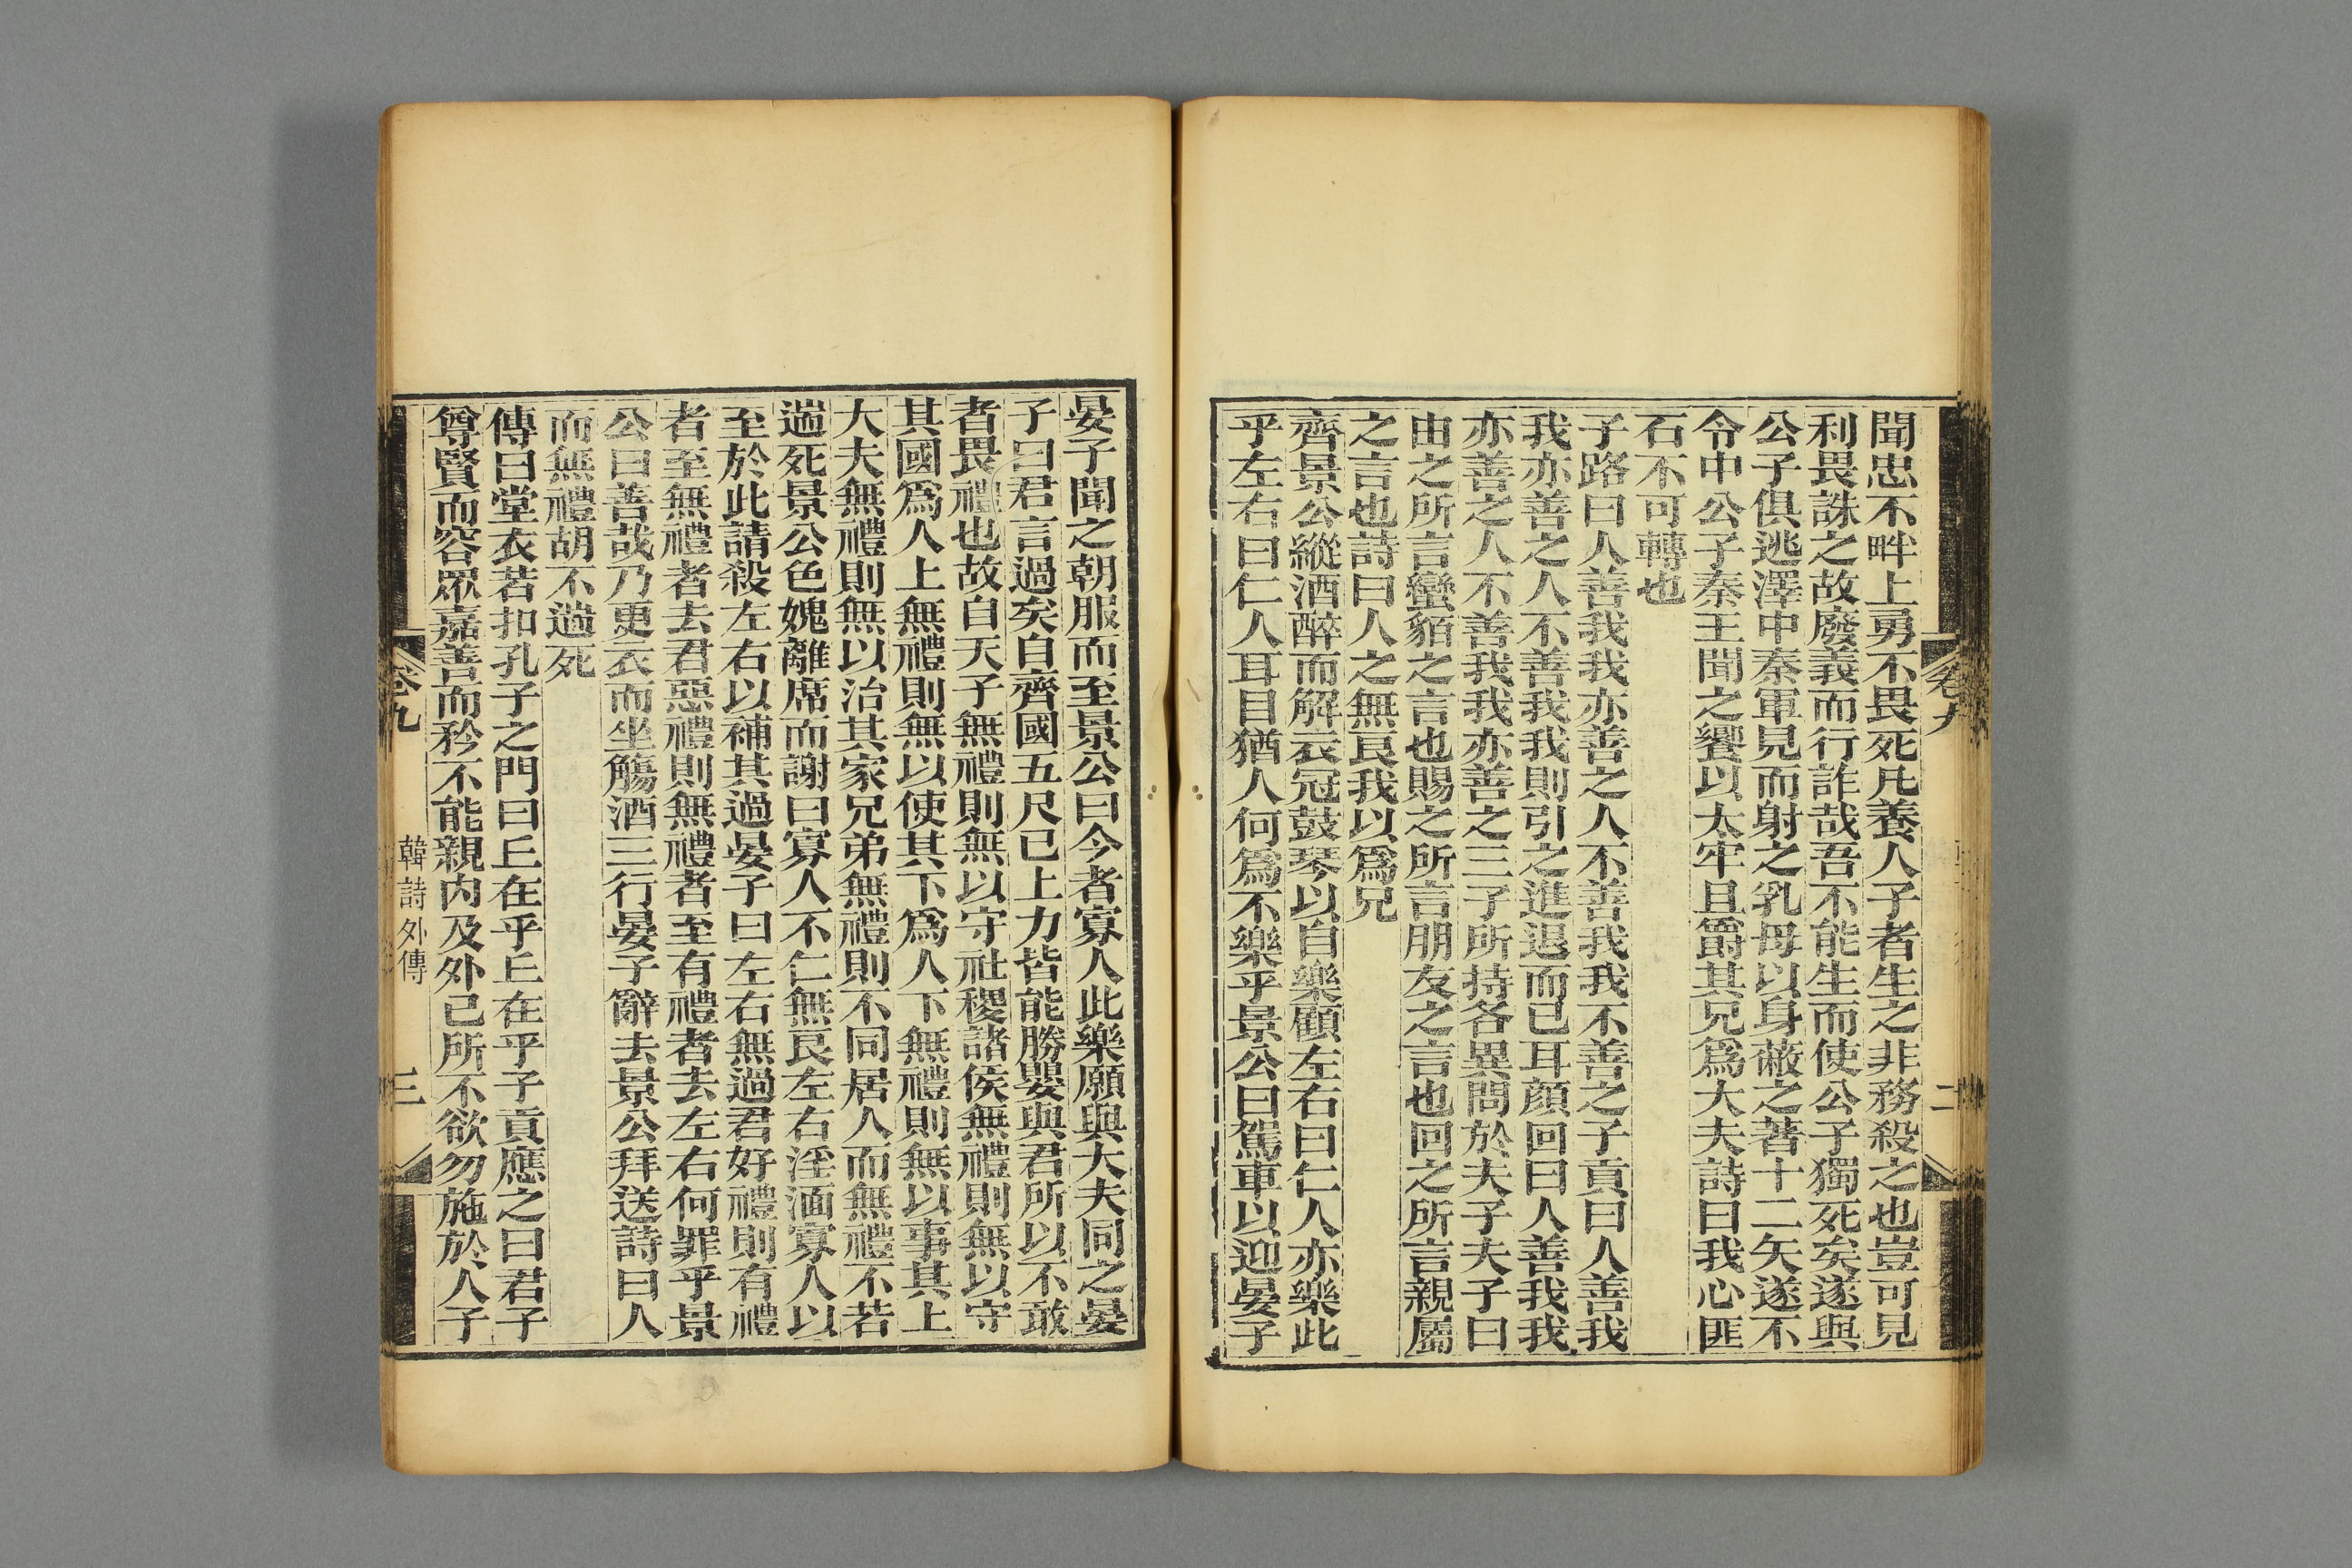 聞忠不畔上勇不畏死凡養人子者生之非務殺之也豈可見
利畏誅之故廢義而行詐哉吾不能生而使公子獨死矣遂與
公子俱逃澤中秦軍見而射之乳母以身蔽之著十二矢遂不
令中公子秦王聞之饗以太牢且爵其兄爲大夫詩曰我心匪
石不可轉也
子路曰人善我我亦善之人不善我我不善之子貢曰人善我
我亦善之人不善我我則引之進退而已耳顔回曰人善我我
亦善之人不善我我亦善之三子所持各異問於夫子夫子曰
由之所言蠻貊之言也賜之所言朋友之言也回之所言親屬
之言也詩曰人之無良我以爲兄
齊景公縱酒醉而解衣冠鼓琴以自樂顧左右曰仁人亦樂此
乎左右曰仁人耳目猶人何爲不樂乎景公曰駕車以迎晏子
卷九
二
晏子聞之朝服而至景公曰今者寡人此樂願與大夫同之晏
子曰君言過矣自齊國五尺已上力皆能勝嬰與君所以不敢
者畏禮也故自天子無禮則無以守社稷諸侯無禮則無以守
其國爲人上無禮則無以使其下爲人下無禮則無以事其上
大夫無禮則無以治其家兄弟無禮則不同居人而無禮不若
遄死景公色媿離席而謝曰寡人不仁無良左右淫湎寡人以
至於此請殺左右以補其過晏子曰左右無過君好禮則有禮
者至無禮者去君惡禮則無禮者至有禮者去左右何罪乎景
公曰善哉乃更衣而坐觴酒三行晏子辭去景公拜送詩曰人
而無禮胡不遄死
傳曰堂衣若扣孔子之門曰丘在乎丘在乎子貢應之曰君子
尊賢而容眾嘉善而矜不能親內及外己所不欲勿施於人子
卷九
韓詩外傳
三